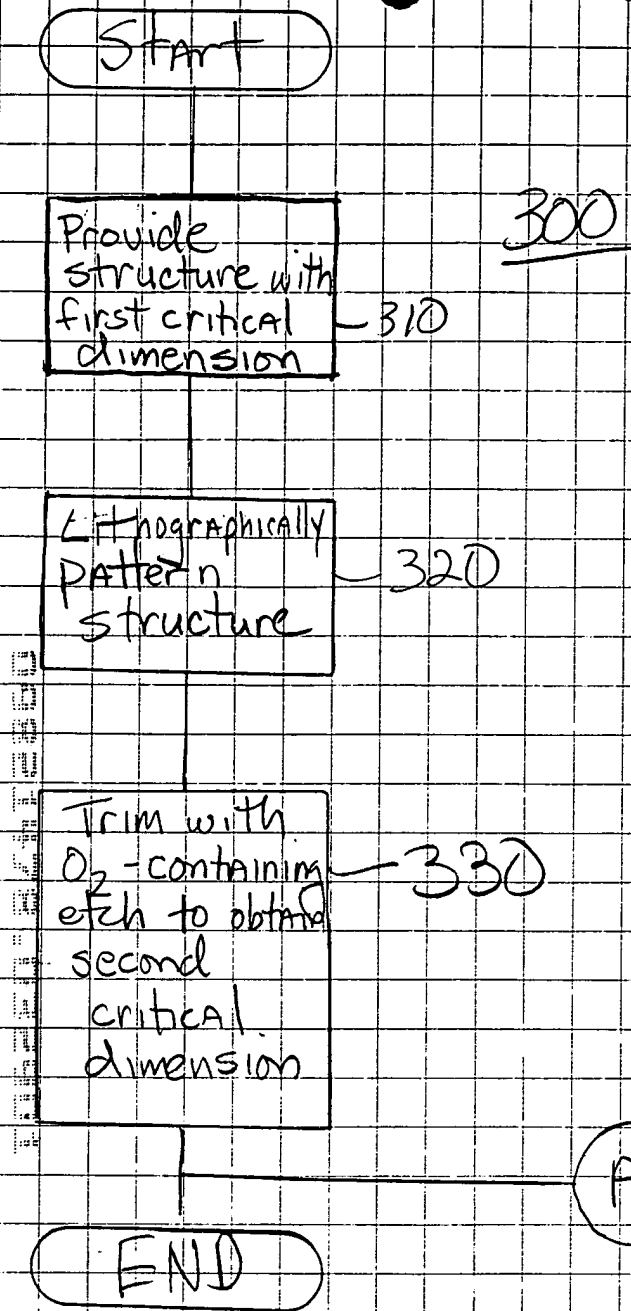 Start
300
Provide
structure with
first critical
dimension
310
Lithographically
pattern
structure
320
Trim with
O2-containing
etch to obtain
second
critical
dimension
330
END